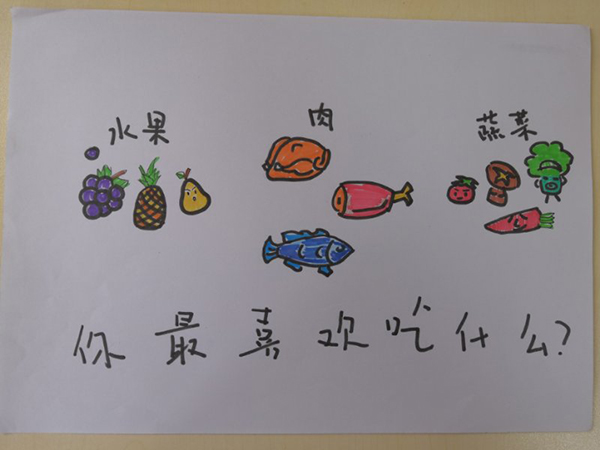 水果 肉 蔬菜
你最喜欢吃什么?